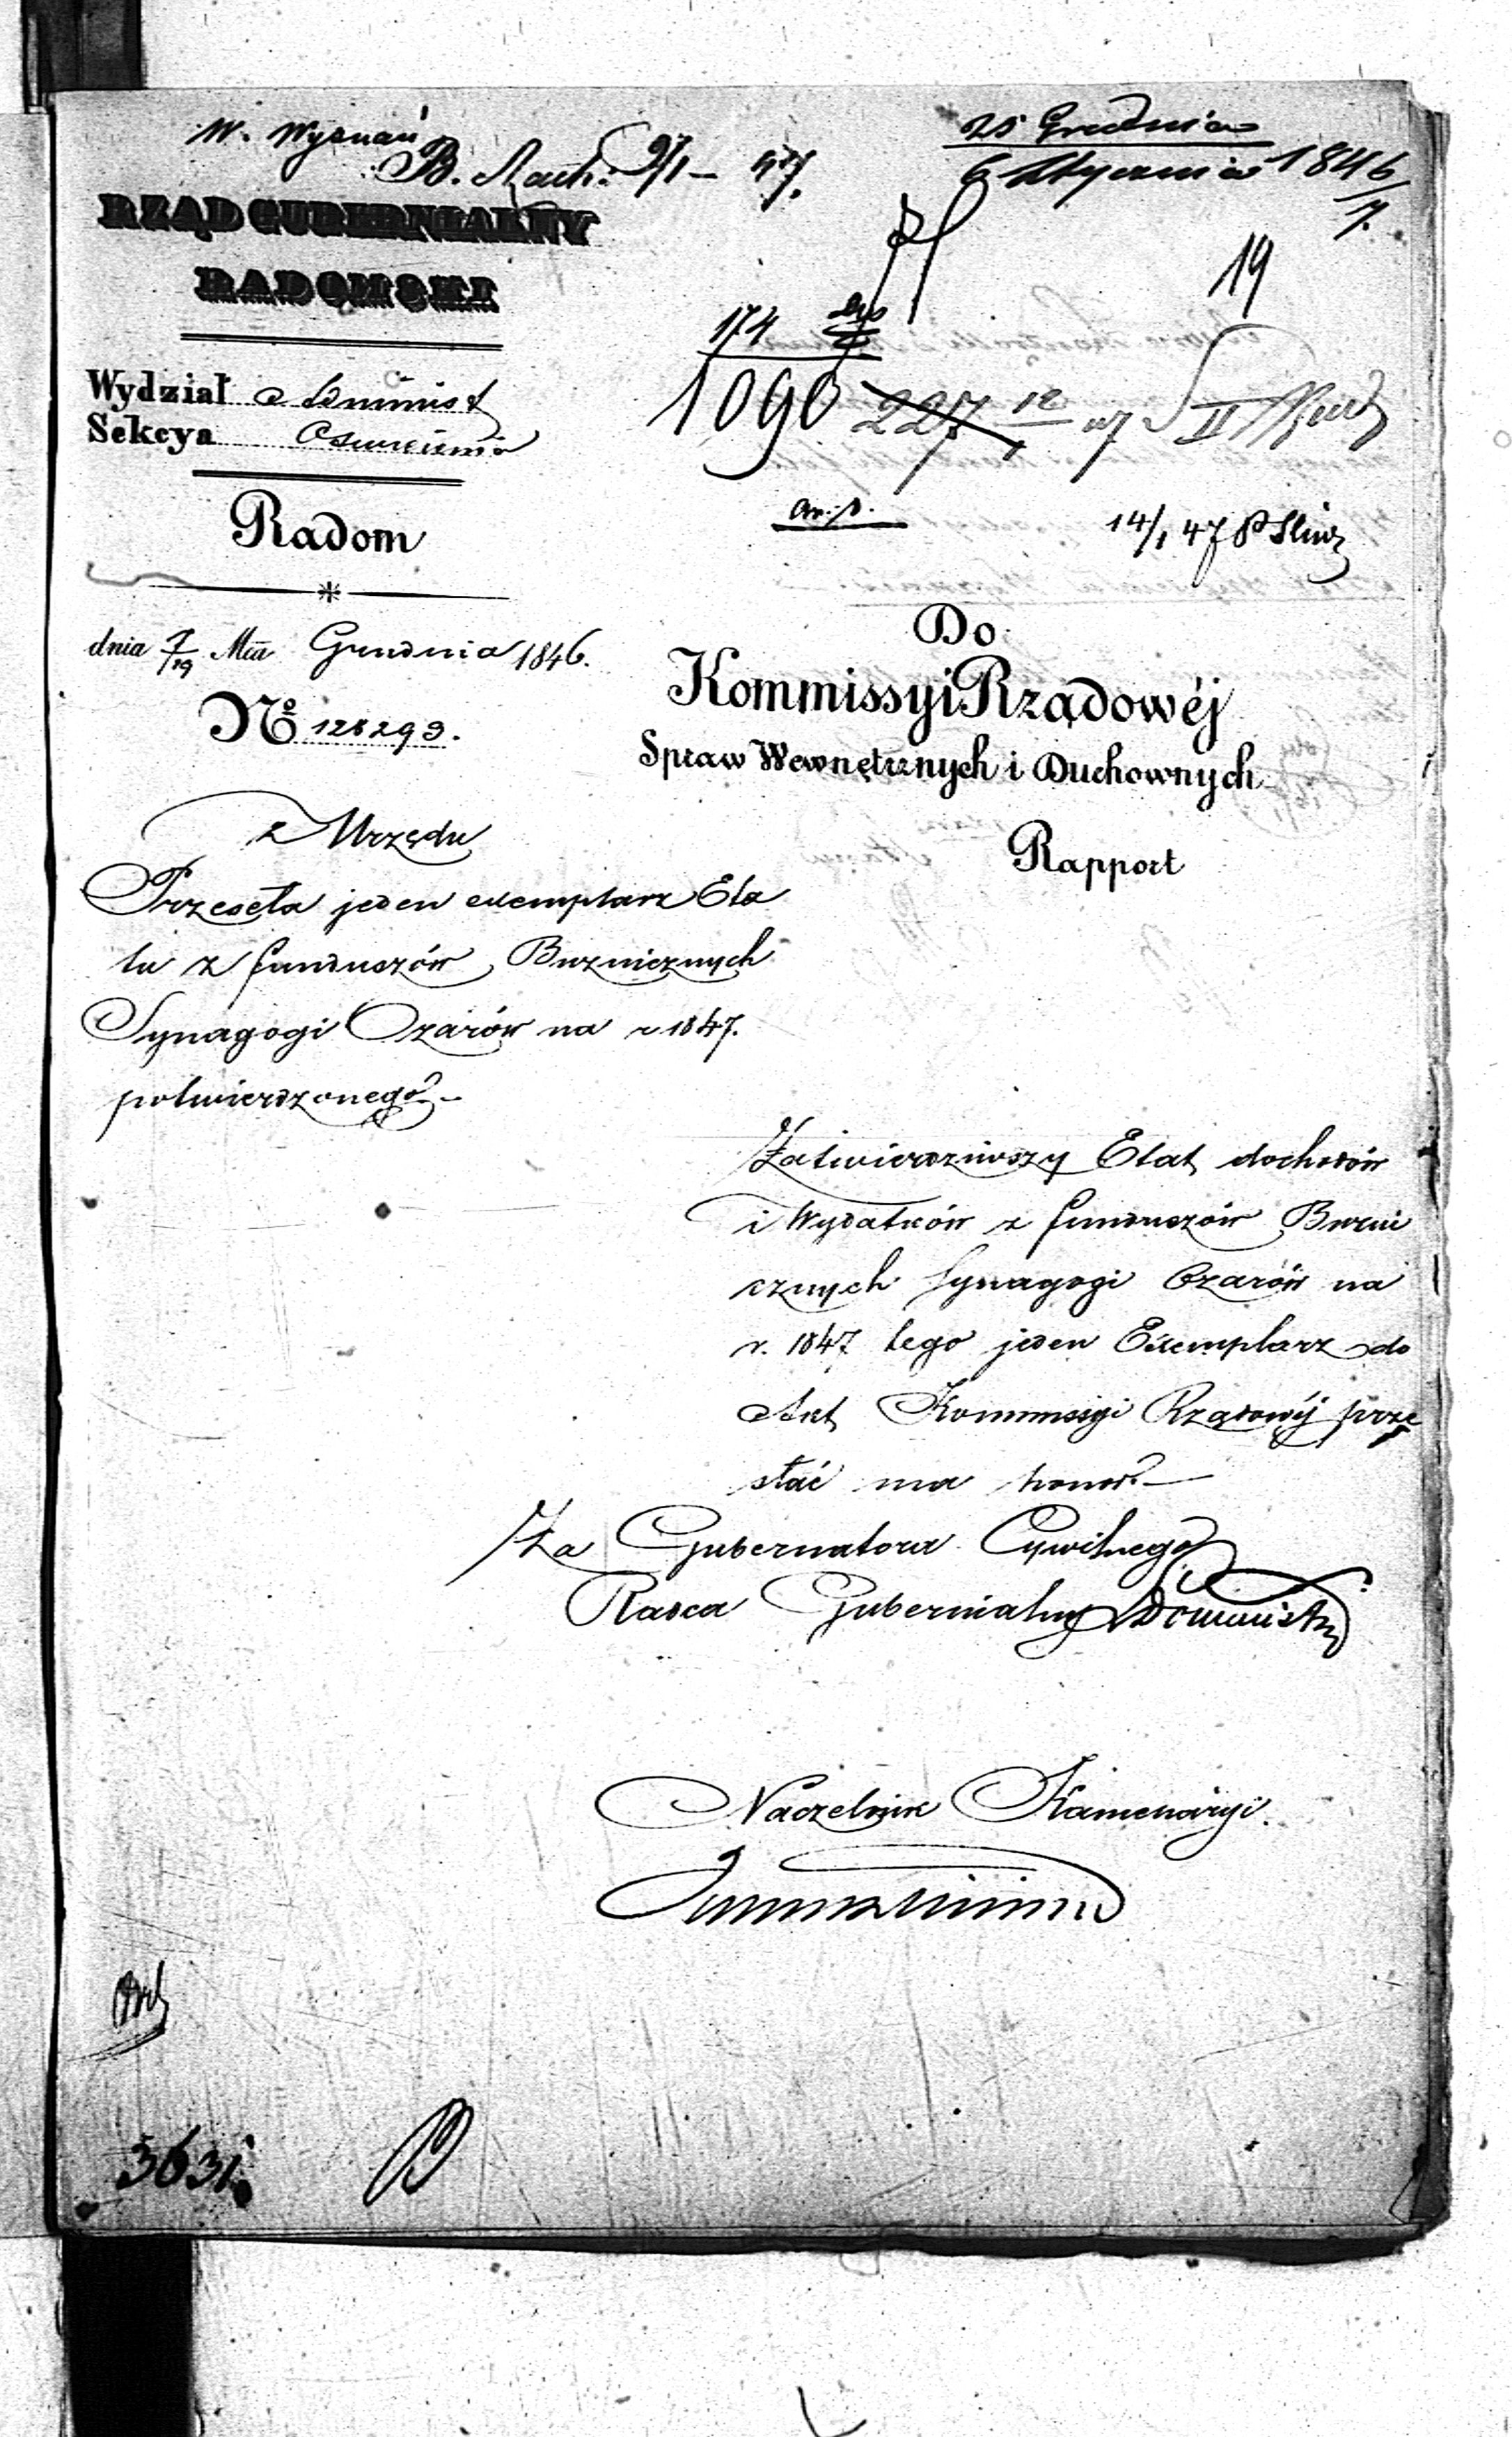 W. Wyznań
B. Rach. 9/1 – 47.
25 Grudnia
6 Stycznia 1846/7.
RZĄD GUBERNIALNY
RADOMSKI
19
174
1090 227 12
Wydział Administ
Sekcya Oświecenia
Radom
14/1 47
dnia 7/19 Mca Grudnia 1846.
No 128293.
Do
Kommissyi Rządowéj
Spraw Wewnętrznych i Duchownych
Rapport
z Urzędu
Przeseła jeden exemplarz Eta
tu z funduszów Bużnicznych
Synagogi Ożarów na r 1847.
potwierdzonego.–
Zatwierdziwszy Etat dochodów
i Wydatków z funduszów Bużni
cznych Synagogi Ożarów na
r. 1847 tego jeden Exemplarz do
Akt Kommissyi Rządowéj prze
słać ma honor.–
Za Gubernatora Cywilnego
Radca Gubernialny
Naczelnik Kancellaryi.
3631.